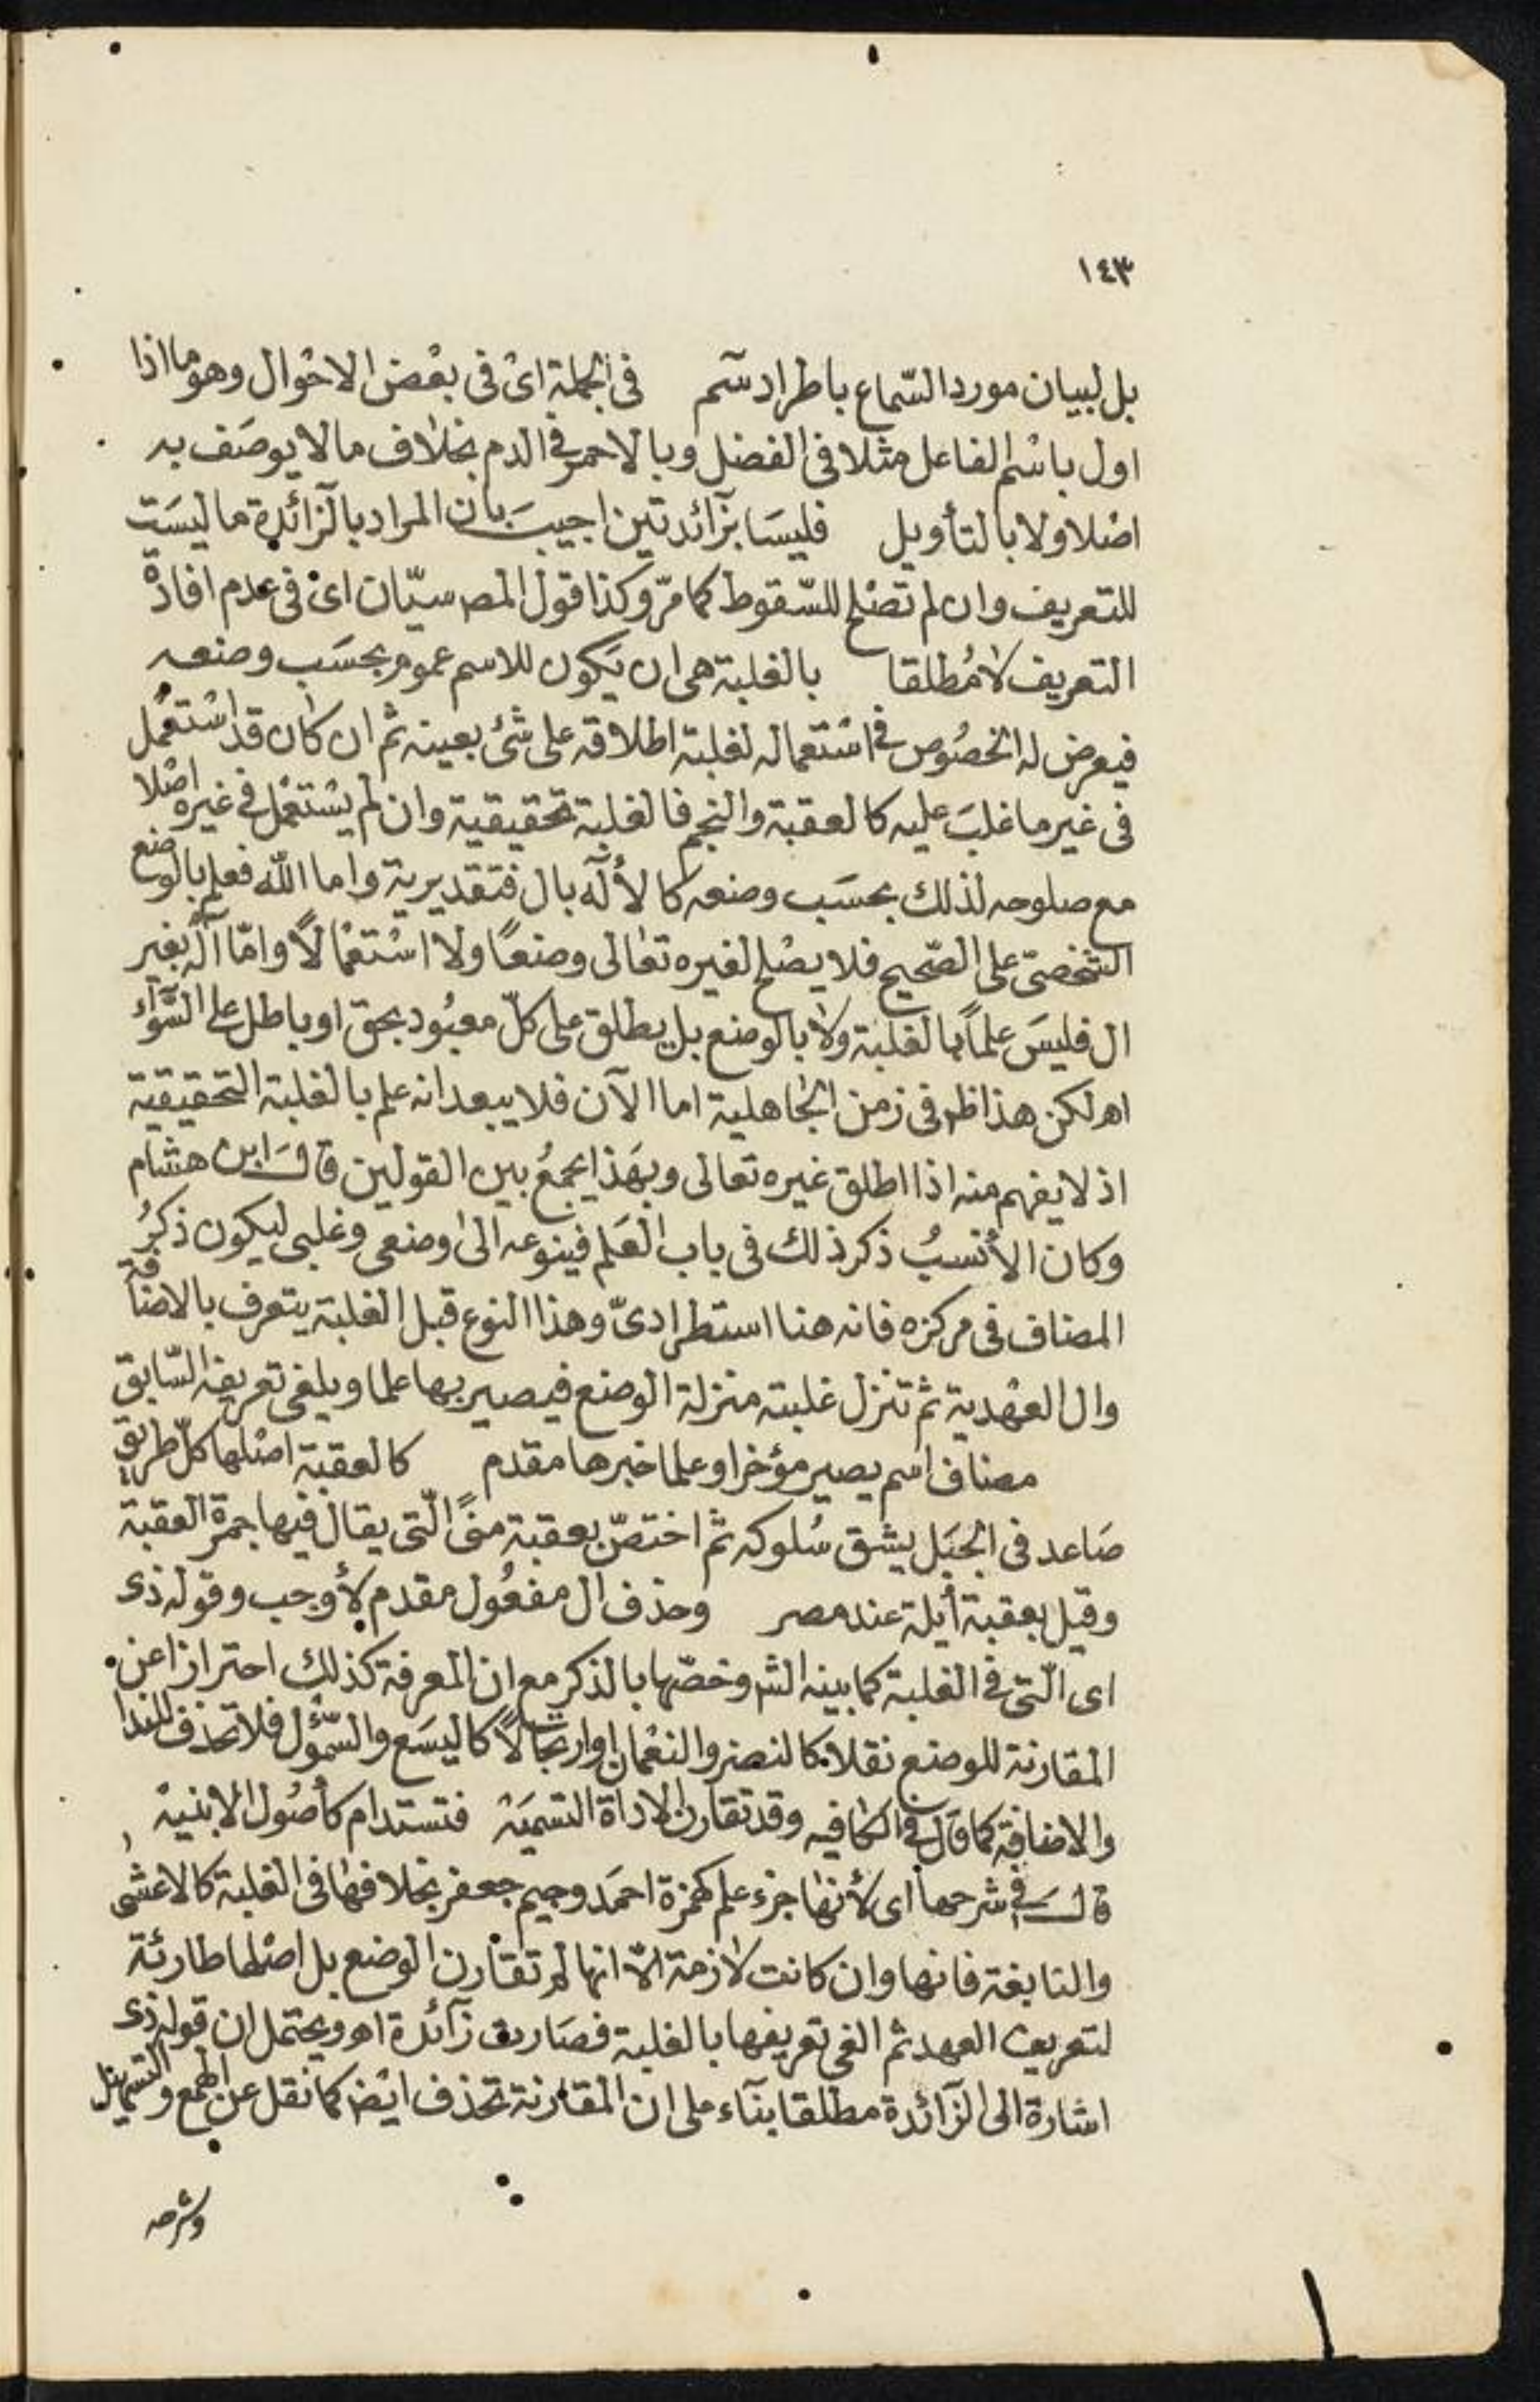 ١٤٣
بل لبيان مورد السّماع باطراد سم في الجملة اى فى بعْض الاحْوال وهو ما اذا
اول باسْم الفاعل مثلا فى الفضل وبالاحمر فى الدم بخلاف مالا يوصَف به
اصْلا ولا بالتأويل فليسَا بزآئدتين اجيبَ بان المراد بالزّائدة ما ليسَت
للتعريف وان لم تصْلح للسّقوط كما مرّ وكذا قول المص سيّان اى فى عدم افادة
التعريف لا مُطلقا بالغلبة هى ان يَكون للاسم عموم بحسَب وضعه
فيعرض له الخصُوص فى اسْتعماله لغلبة اطلاقه على شئ بعينه ثم ان كان قد اسْتعمل
فى غير ما غلبَ عليه كالعقبة والنجم فالغلبة تحقيقية وان لم يسْتعمل فى غيره اصْلا
مع صلوحه لذلك بحسَب وضعه كالأله بال فتقديرية واما الله فعلم بالوضع
الشخصىّ على الصّحيح فلا يصْلح لغيره تعالى وضعاً ولا اسْتعْمالاً وامّا آله بغير
ال فليسَ علماً بالغلبة ولا بالوضع بل يطلق على كلّ معبُود بحق او باطل على السَّوآء
اه لكن هذا ظ فى زمن الجاهلية اما الآن فلا يبعد انه علم بالغلبة التحقيقية
اذ لا يفهم منه اذا اطلق غيره تعالى وبهَذا يجمعُ بين القولين قالَ ابن هشام
وكان الأنسبُ ذكر ذلك فى باب العَلم فينوعه الى وضعى وغلبى ليكون ذكرُ
المضاف فى مركزه فانه هنا استطرادىّ وهذا النوع قبل الغلبة يتعرف بالاضافة
وال العهْدية ثم تنزل غلبته منزلة الوضع فيصير بها علما ويلغى تعريفه السّابق
مضاف اسم يصير مؤخرا وعلما خبرها مقدم كالعقبة اصْلها كلّ طريق
صَاعد فى الجبَل يشق سُلوكه ثم اختصّ بعقبة منىً الّتى يقال فيها جمرة العقبة
وقيل بعقبة أيلة عند مصر وحذف ال مفعُول مقدم لأوجب وقوله ذى
اى الّتى فى الغلبة كما بينه الش وخصّها بالذكر مع ان المعرفة كذلك احترازا عن
المقارنة للوضع نقلا كالنضر والنعْمان او ارتجالاً كاليسَع والسّمؤل فلا تحذف للندا
والاضافة كما قال فى الكافيه وقد تقارن الاداة التسميَة فتستدام كأصُول الابنية
قال فى شرحها اى لأنها جزء علم كهمزة احمَد وجيم جعفر بخلافها فى الغلبة كالاعشى
والنابغة فانها وان كانت لازمة الّا انها لم تقارن الوضع بل اصْلها طارئة
لتعريف العهد ثم الغى تعريفها بالغلبة فصَارت زآئدة اه ويحتمل ان قوله ذى
اشارة الى الزّآئدة مطلقا بنآء على ان المقارنة تحذف ايض كما نقل عن الهمع والتسهيل
وشرحه